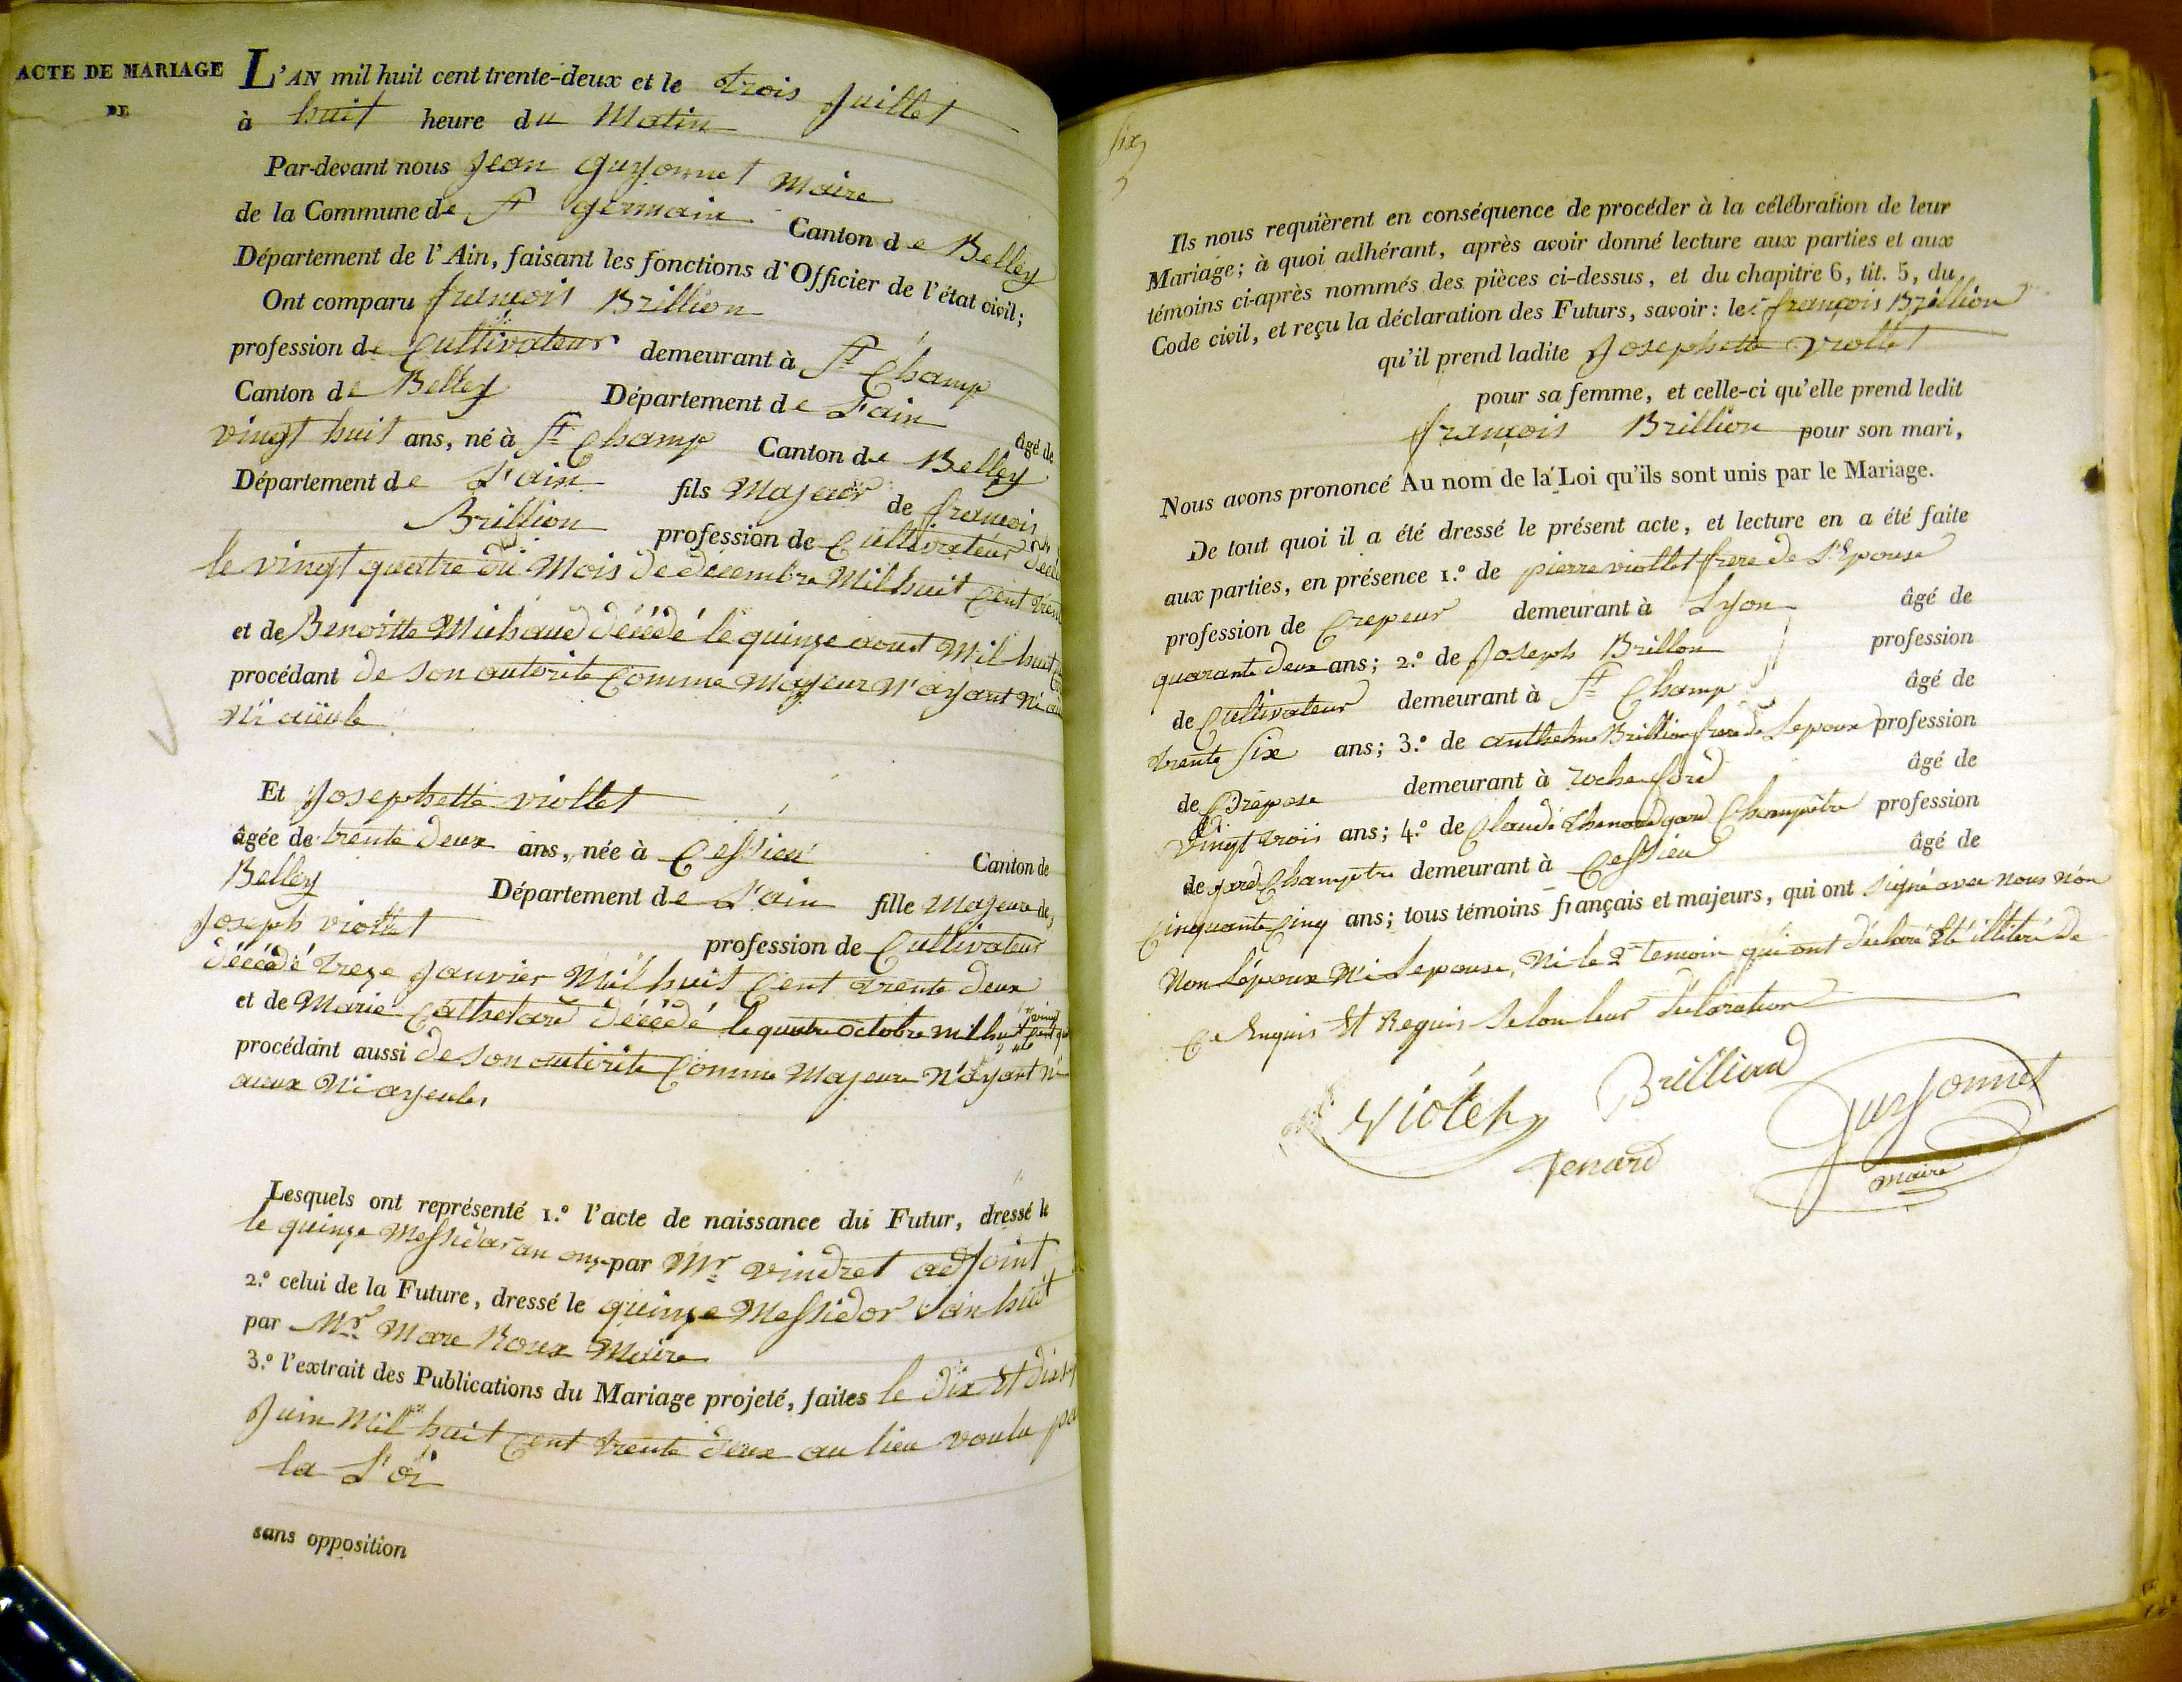 ACTE DE MARIAGE
DE
L'AN mil huit cent trente-deux et le trois Juillet
à huit heure du Matin
Par-devant nous Jean Guyonnet Maire
de la Commune de St germain Canton de Belley
Département de l'Ain, faisant les fonctions d'Officier de l'état civil;
Ont comparu françois Brillion
profession de Cultivateur demeurant à St Champ
Canton de Belley Département de L'ain âgé de
vingt huit ans, né à St Champ Canton de Belley
Département de L'ain fils Majeur de françois
Brillion profession de Cultivateur
le vingt quatre du Mois de decembre Mil huit Cent
et de Benoitte Michaud décédé le quinze aout Mil huit
procédant de son autorite Comme Mayeur N'ayant Ni
Ni aieule
Et Josephette viollet
âgée de trente deux ans, née à Cessieu Canton de
Belley Département de L'ain fille Majeure de
Joseph viollet profession de Cultivateur
décédé treze Janvier Mil huit Cent trente deux
et de Marie décédé le quatre octobre mil huit
procédant aussi de son autorite Comme Majeure N'ayant Ni
aieux Ni ayeules
Lesquels ont représenté 1.º l'acte de naissance du Futur, dressé le
le quinze Messidor an onze par Mr vindret adjoint
2.º celui de la Future, dressé le quinze Messidor an huit
par Mr Marc Roux Maire
3.º l'extrait des Publications du Mariage projeté, faites le dix Et
Juin Mil huit Cent trente deux au lieu voulu
la L'oi
sans opposition
six
Ils nous requièrent en conséquence de procéder à la célébration de leur
Mariage; à quoi adhérant, après avoir donné lecture aux parties et aux
témoins ci-après nommés des pièces ci-dessus, et du chapitre 6, tit. 5, du
Code civil, et reçu la déclaration des Futurs, savoir: le françois Brillion
qu'il prend ladite Josephette viollet
pour sa femme, et celle-ci qu'elle prend ledit
françois Brillion pour son mari,
Nous avons prononcé Au nom de la Loi qu'ils sont unis par le Mariage.
De tout quoi il a été dressé le présent acte, et lecture en a été faite
aux parties, en présence 1.º de pierre viollet frere de L'Epouse
profession de Crepeur demeurant à Lyon âgé de
quarante deux ans; 2.º de Joseph Brillon profession
de Cultivateur demeurant à St Champ âgé de
trente six ans; 3.º de anthelme Brillion frere de Lepoux profession
de Prepose demeurant à rocheford âgé de
vingt trois ans; 4.º de Claude thenard gard Champêtre profession
de gard Champetre demeurant à Cessieu âgé de
Cinquante Cinq ans; tous témoins français et majeurs, qui ont signé avec nous Non
Non L'époux Ni Lepouse, Ni le 2e temoin qui ont déclaré Eté illitéré de
Ce Enquis Et Requis Selon leur déclaration
Violet Brilliond Guyonnet
Tenard maire